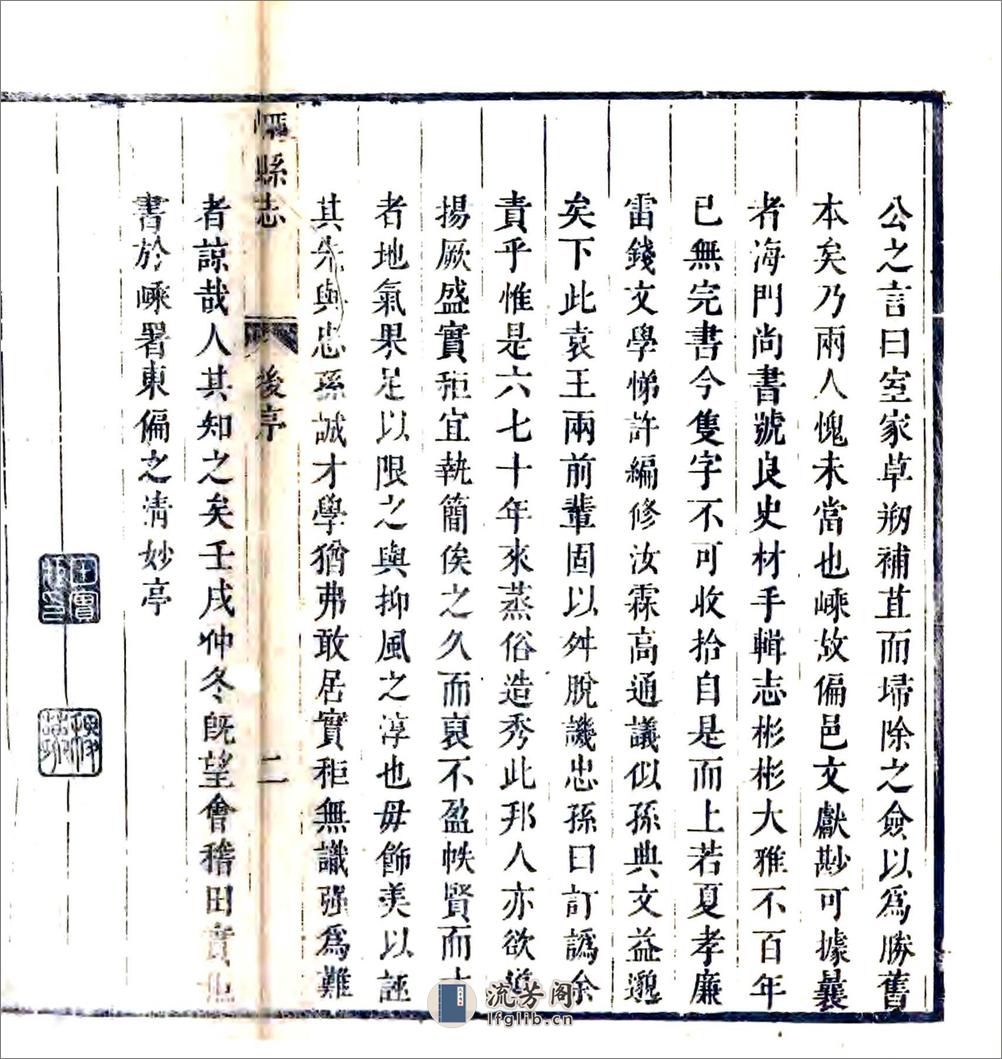 公之言曰室家草剏補苴而埽除之僉以爲勝舊
本矣乃兩人愧未當也嵊故偏邑文獻尠可據曩
者海門尚書號良史材手輯志彬彬大雅不百年
已無完書今隻字不可收拾自是而上若夏孝廉
雷錢文學悌許編修汝霖高通議似孫典文益邈
矣下此袁王兩前輩固以舛脫譏忠孫曰訂譌余
責乎惟是六七十年來蒸俗造秀此邦人亦欲導
揚厥盛實秬宜執簡俟之久而裒不盈帙賢而才
者地氣果足以限之與抑風之淳也毋飾美以誣
其先與忠孫誠才學猶弗敢居實秬無識强爲難
縣志
後序
二
者諒哉人其知之矣壬戌仲冬旣望會稽田實
書於嵊署東偏之清妙亭
流芳阁
lfglib.cn